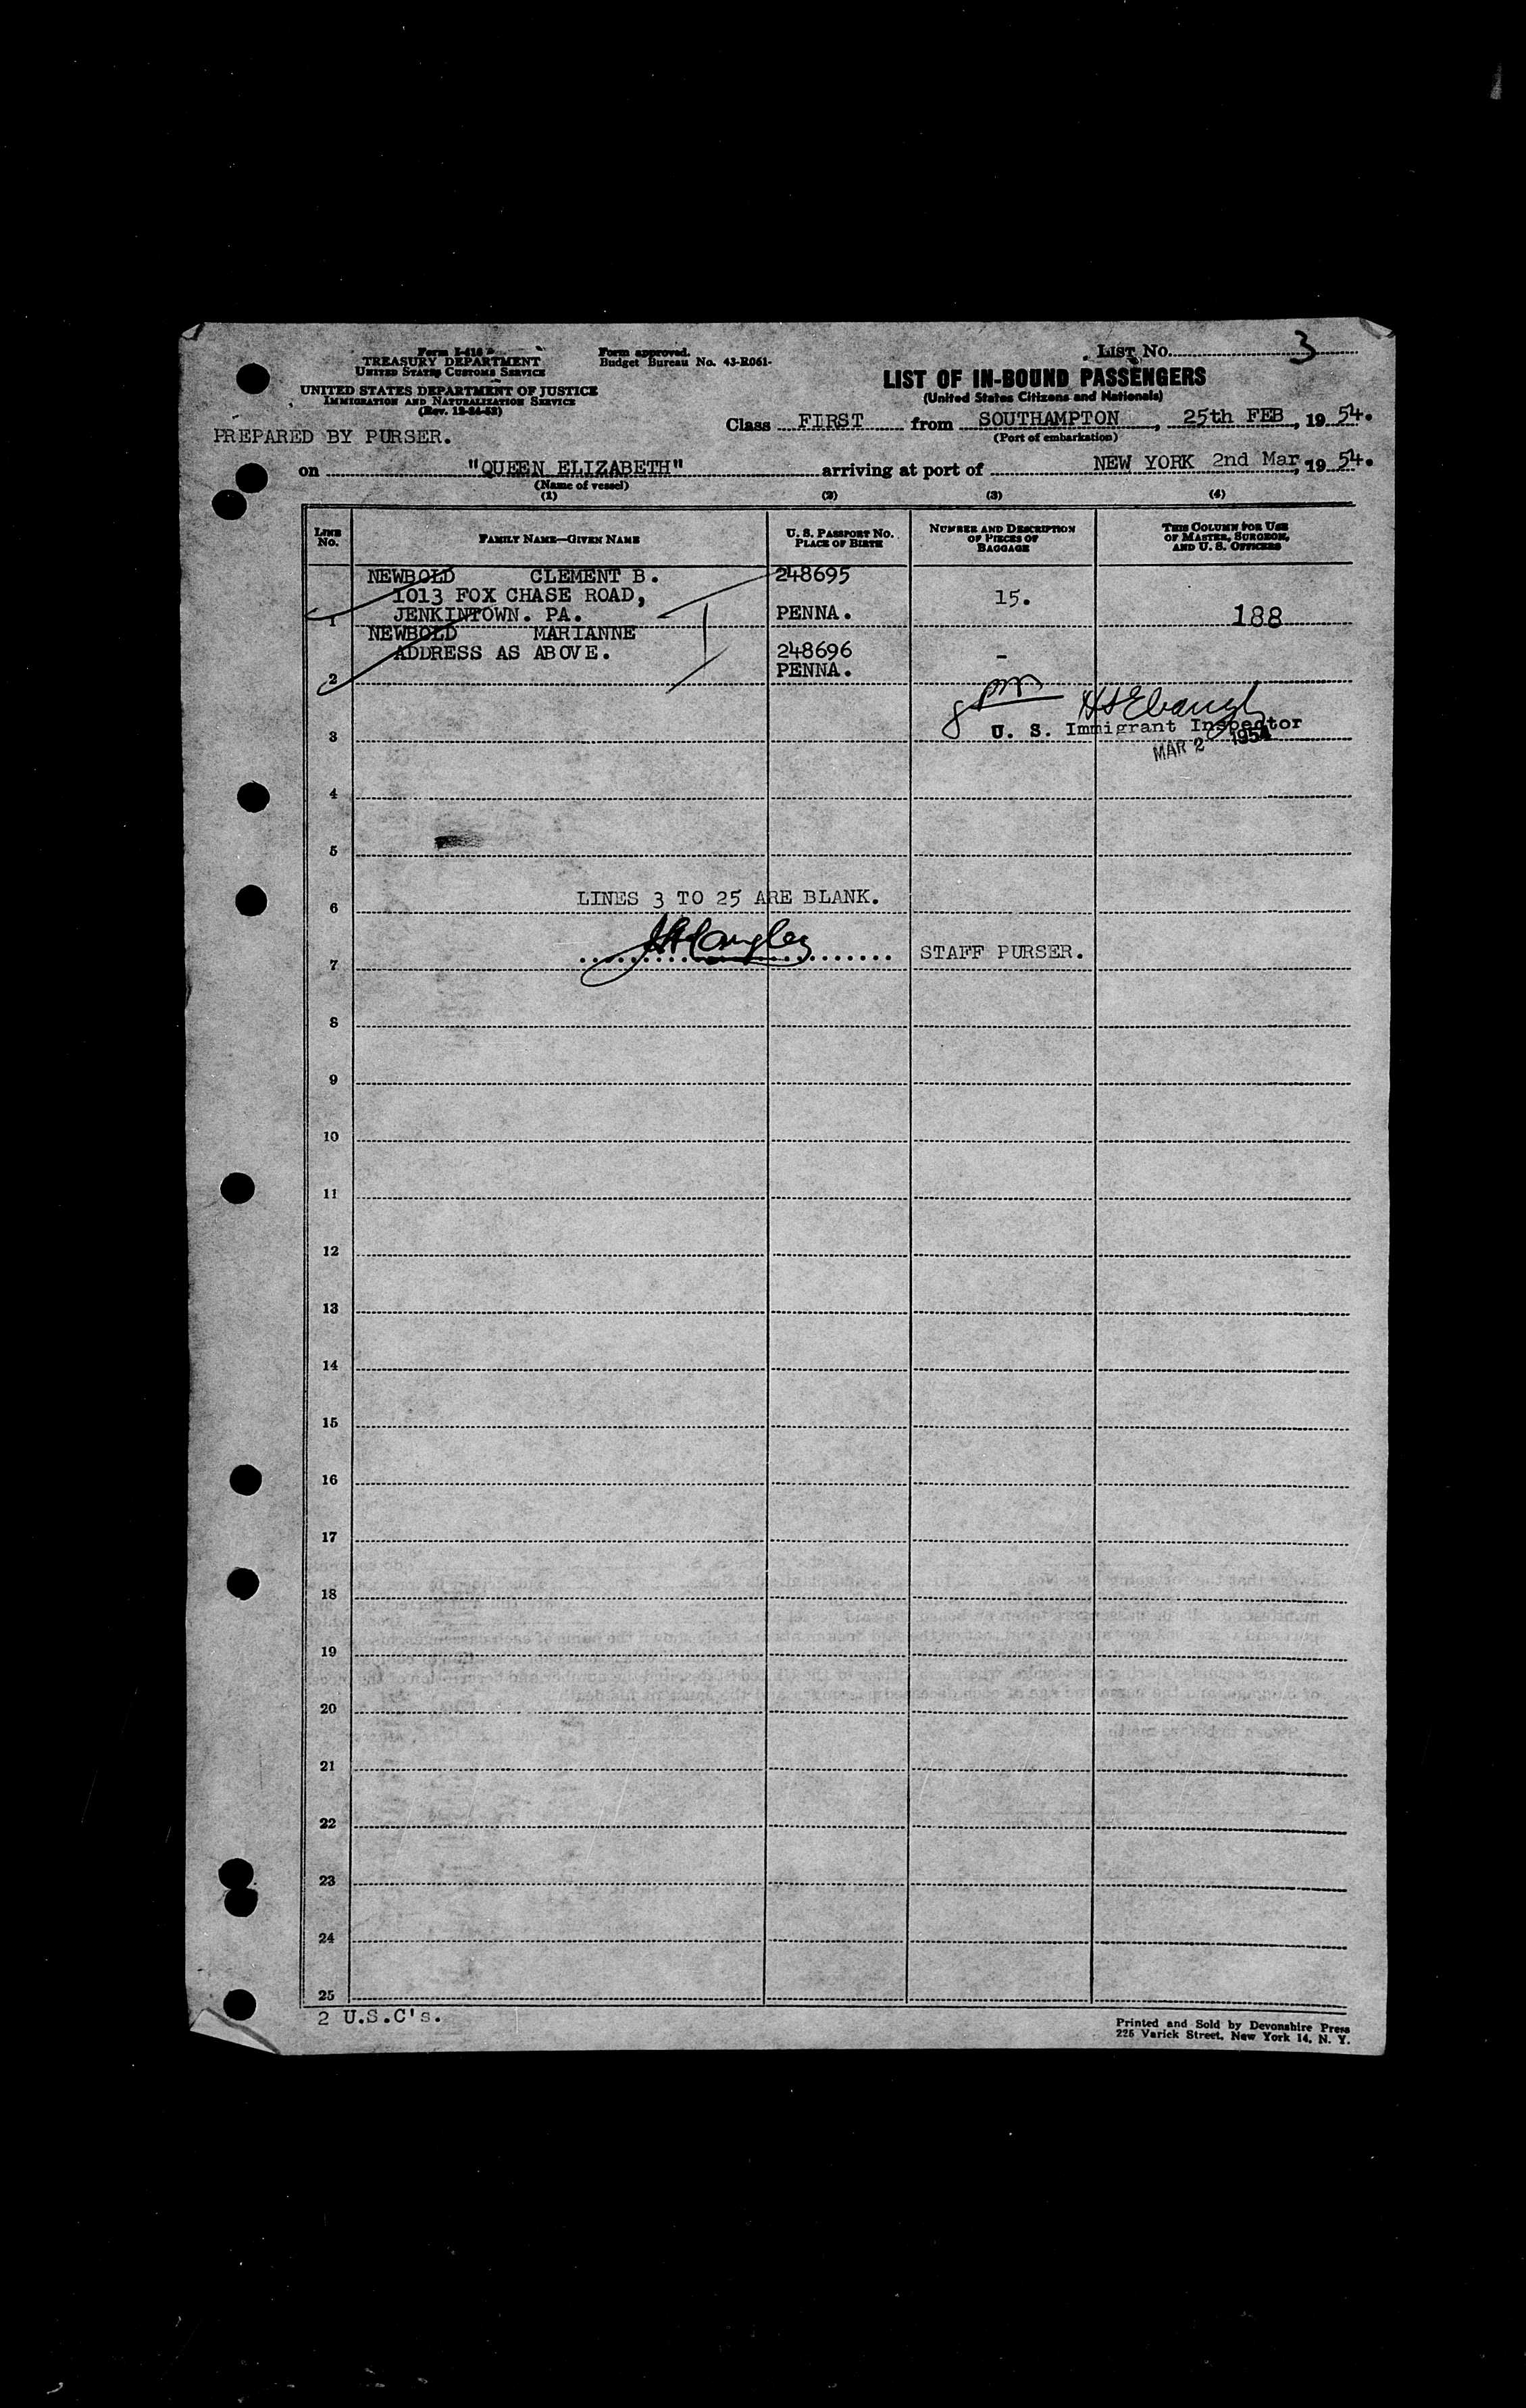 Form I-418
TREASURY DEPARTMENT
UNITED STATES CUSTOMS SERVICE
UNITED STATES DEPARTMENT OF JUSTICE
IMMIGRATION AND NATURALIZATION SERVICE
(Rev. 12-24-52)
Form approved.
Budget Bureau No. 43-R061-
LIST No. 3
LIST OF IN-BOUND PASSENGERS
(United States Citizens and Nationals)
PREPARED BY PURSER.
Class FIRST from SOUTHAMPTON, 25th FEB, 1954.
(Port of embarkation)
on "QUEEN ELIZABETH" arriving at port of NEW YORK 2nd Mar, 1954.
(Name of vessel)
(1) (2) (3) (4)
LINE No. FAMILY NAME—GIVEN NAME U. S. PASSPORT No. PLACE OF BIRTH NUMBER AND DESCRIPTION OF PIECES OF BAGGAGE THIS COLUMN FOR USE OF MASTER, SURGEON, AND U. S. OFFICERS
NEWBOLD CLEMENT B. 248695
1013 FOX CHASE ROAD, 15.
1 JENKINTOWN. PA. PENNA. 188
NEWBOLD MARIANNE
ADDRESS AS ABOVE. 248696 -
2 PENNA.
U. S. Immigrant Inspector
3 MAR 2 1954
4
5
LINES 3 TO 25 ARE BLANK.
6
STAFF PURSER.
7
8
9
10
11
12
13
14
15
16
17
18
19
20
21
22
23
24
25
2 U.S.C's.
Printed and Sold by Devonshire Press
225 Varick Street, New York 14, N. Y.